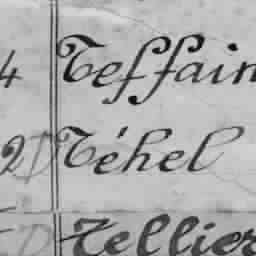 4 Teffain
2 D Téhel
D Tellier